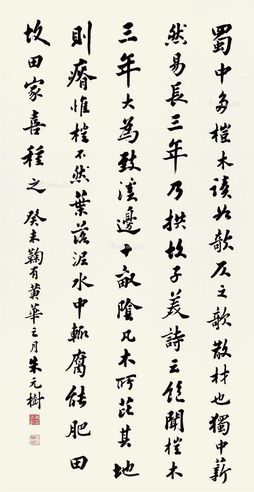 蜀中多榿木讀如欹仄之欹散材也獨中薪
然易長三年乃拱故子美詩云飽聞榿木
三年大為致溪邊十畝陰凡木所芘其地
則瘠惟榿不然葉落泥水中輒腐能肥田
故田家喜種之 癸未鞠有黃華之月朱元樹